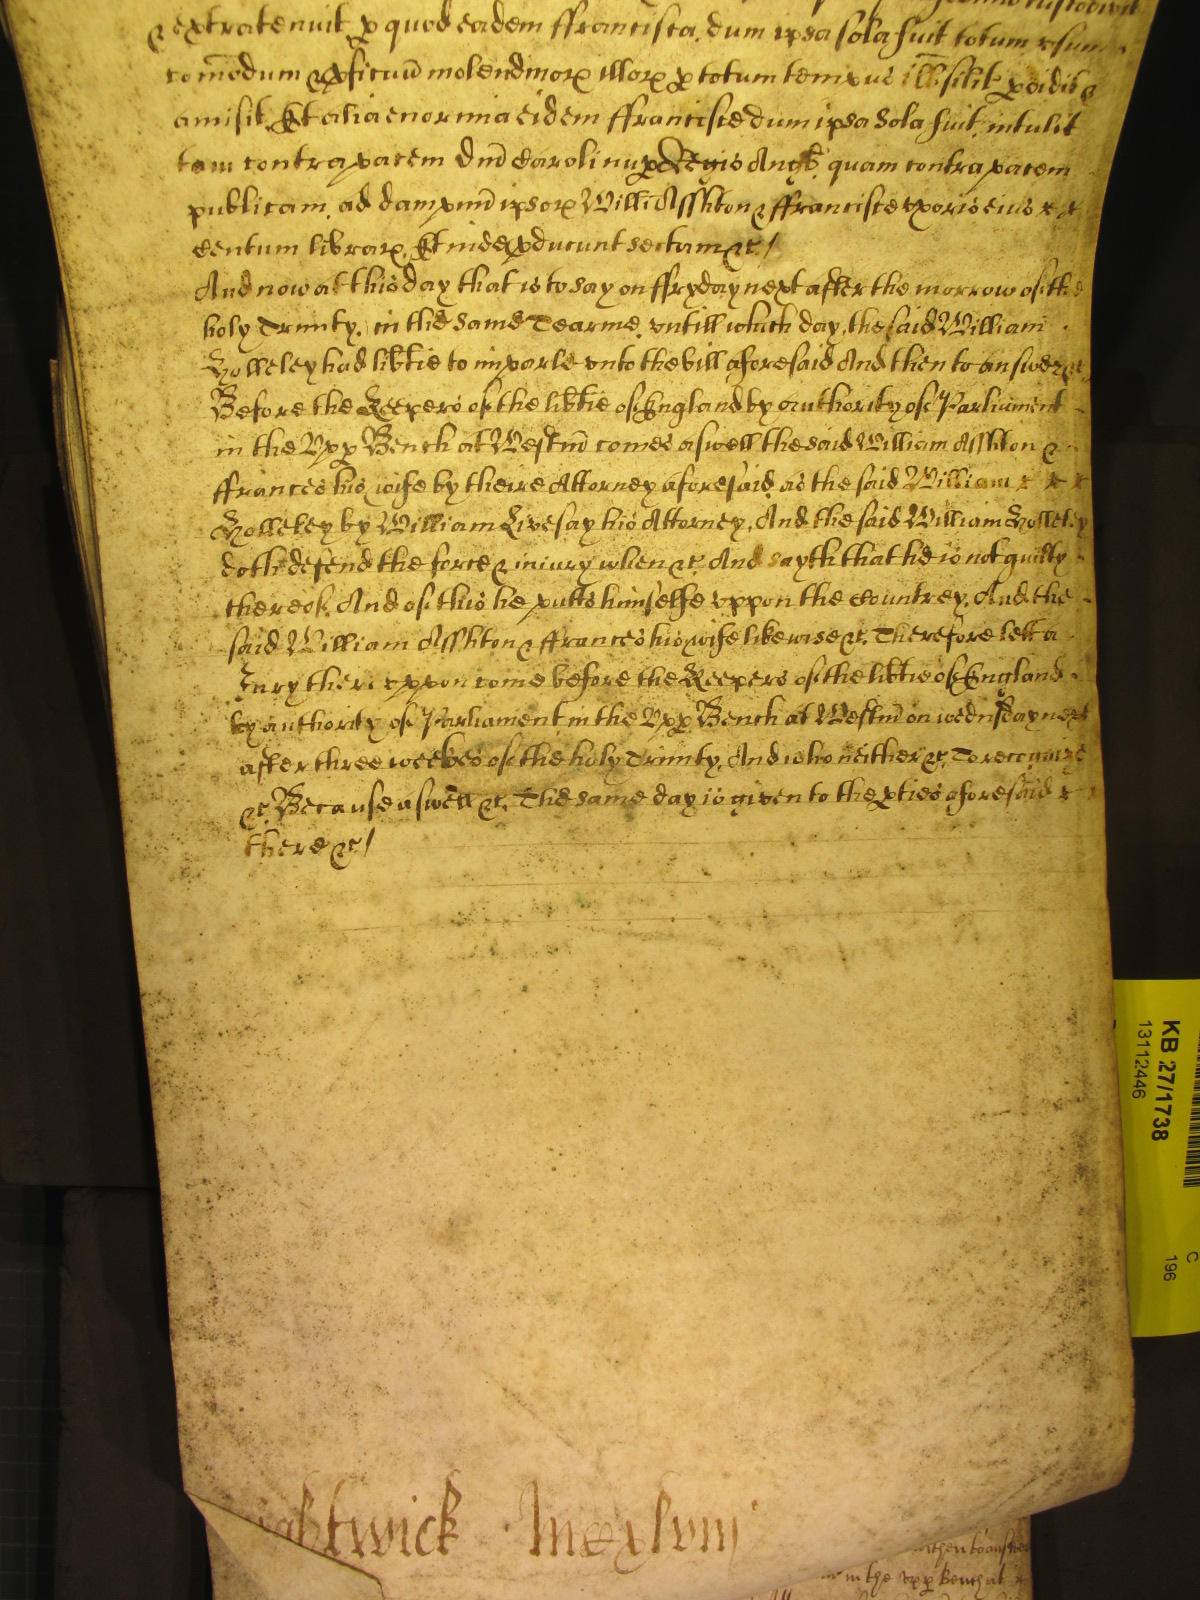 & extratenuit p quod eadem ffrancisca dum ipsa sola fuit totum usum
comodum & pficuu molendinor illor p totum tempus illud silit pdidit &
amisit Et alia enormia eidem ffrancisce dum ipsa sola fuit intulit
tam contra pacem Dni Caroli nup Regis Angl quam contra pacem
publicam ad dampnu ipsor Willi Asshton & ffrancisce uxoris eius
Centum librar Et inde pducunt sectam &c /
And now at this day that is to say on ffryday next after the morrow of the
holy Trinity in the same Tearme untill which day the said William
Holleley had libtie to imparle unto the bill aforesaid And then to answer &c
Before the Keepers of the libtie of England by authority of Parliament
in the Upp Bench at Westm comes aswell the said William Asshton &
ffrances his wife by theire Attorney aforesaid as the said William
Holleley by William Livesay his Attorney And the said William Holleley
doth defend the force & iniury when &c And sayth that he is not guilty
thereof And of this he putts himselfe uppon the Countrey And the
said William Asshton & ffrances his wife likewise &c Therefore lett a
Jury thereuppon come before the Keepers of the libtie of England
by authority of Parliament in the Upp Bench at Westm on wednesday next
after three weekes of the holy Trinity And who neither &c To recognize
&c Because aswell &c The same day is given to the pties aforesaid
there &c /
KB 27/1738
13112446
C
196
in the Upp Bench at